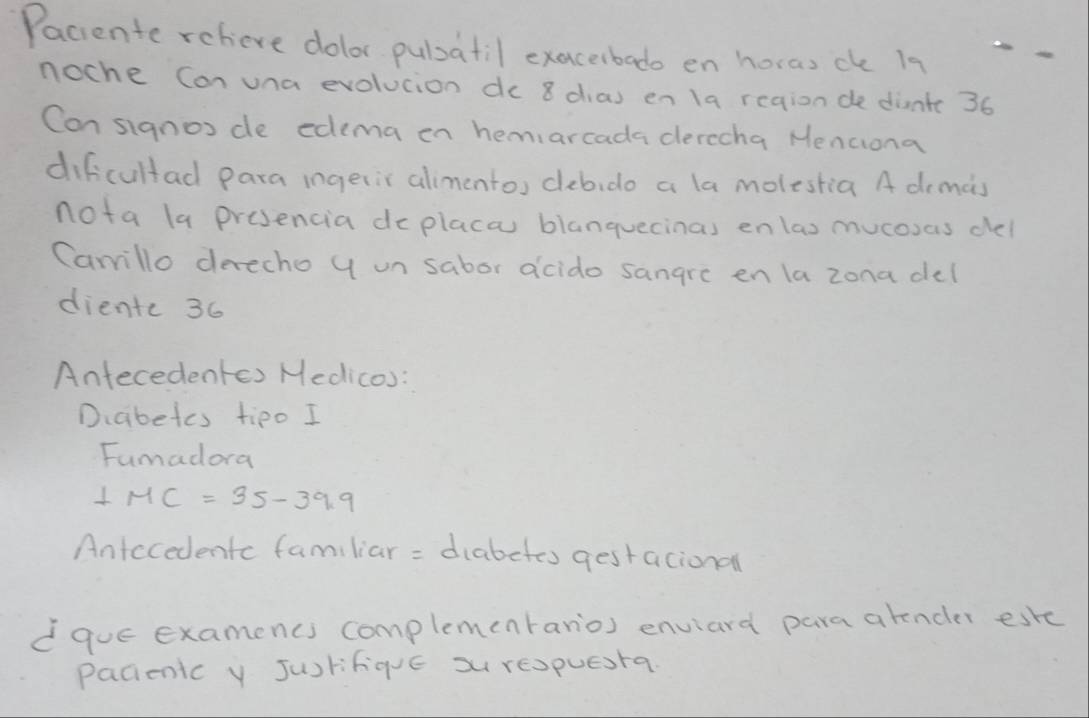 Paciente refiere dolor pulsátil exacerbado en horas de la
noche con una evolucion de 8 dias en la region de diente 36
Con signos de edema en hemiarcada derecha Menciona
dificultad para ingerir alimentos debido a la molestia Además
nota la presencia de placas blanquecinas en las mucosas del
Carrillo derecho y un sabor ácido sangre en la zona del
diente 36
Antecedentes Medicos:
Diabetes tipo I
Fumadora
IMC = 35-39.9
Antecedente familiar = diabetes gestacional
¿que examenes complementarios enviará para atender este
paciente y Justifique su respuesta.